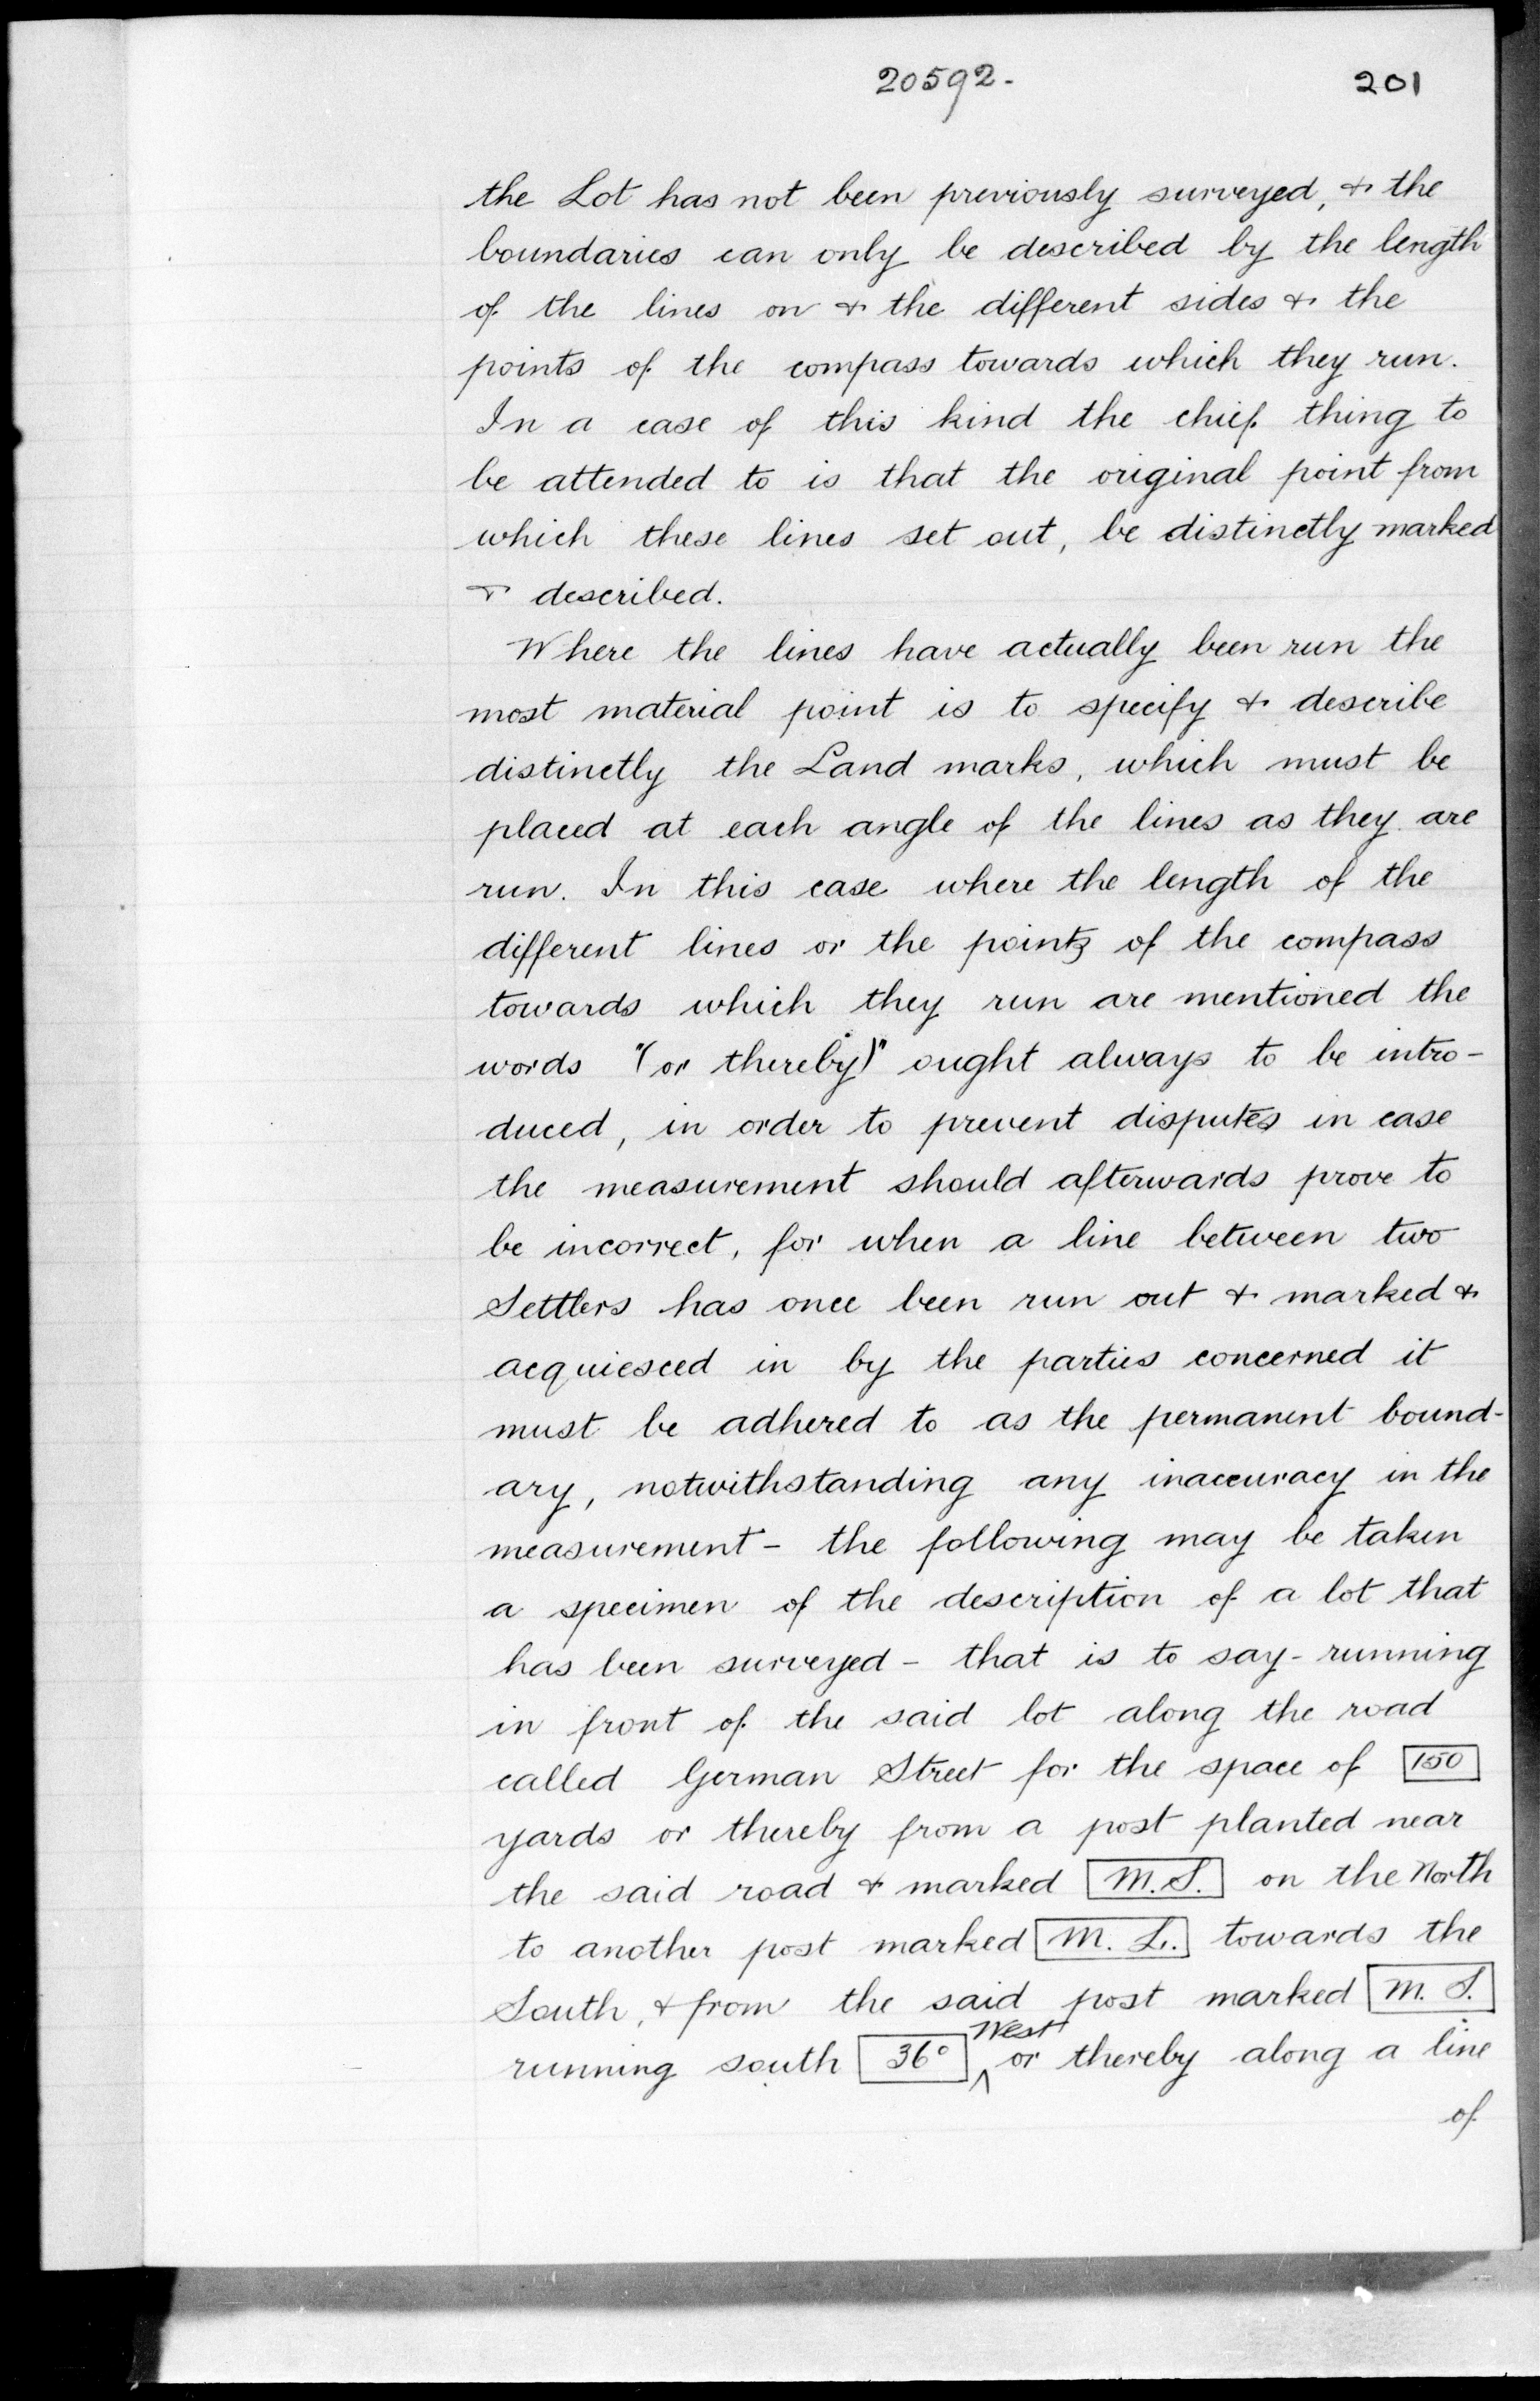 20592.
201
the Lot has not been previously surveyed, & the
boundaries can only be described by the length
of the lines on & the different sides & the
points of the compass towards which they run.
In a case of this kind the chief thing to
be attended to is that the original point from
which these lines set out, be distinctly marked
& described.
Where the lines have actually been run the
most material point is to specify & describe
distinctly the Land marks, which must be
placed at each angle of the lines as they are
run. In this case where the length of the
different lines or the points of the compass
towards which they run are mentioned the
words "(or thereby)" ought always to be intro-
duced, in order to prevent disputes in case
the measurement should afterwards prove to
be incorrect, for when a line between two
Settlers has once been run out & marked &
acquiesced in by the parties concerned it
must be adhered to as the permanent bound-
ary, notwithstanding any inaccuracy in the
measurement - the following may be taken
a specimen of the description of a lot that
has been surveyed - that is to say - running
in front of the said lot along the road
called German Street for the space of 150
yards or thereby from a post planted near
the said road & marked M.S. on the North
to another post marked M. L. towards the
South, & from the said post marked M. S.
running south 36° West or thereby along a line
of